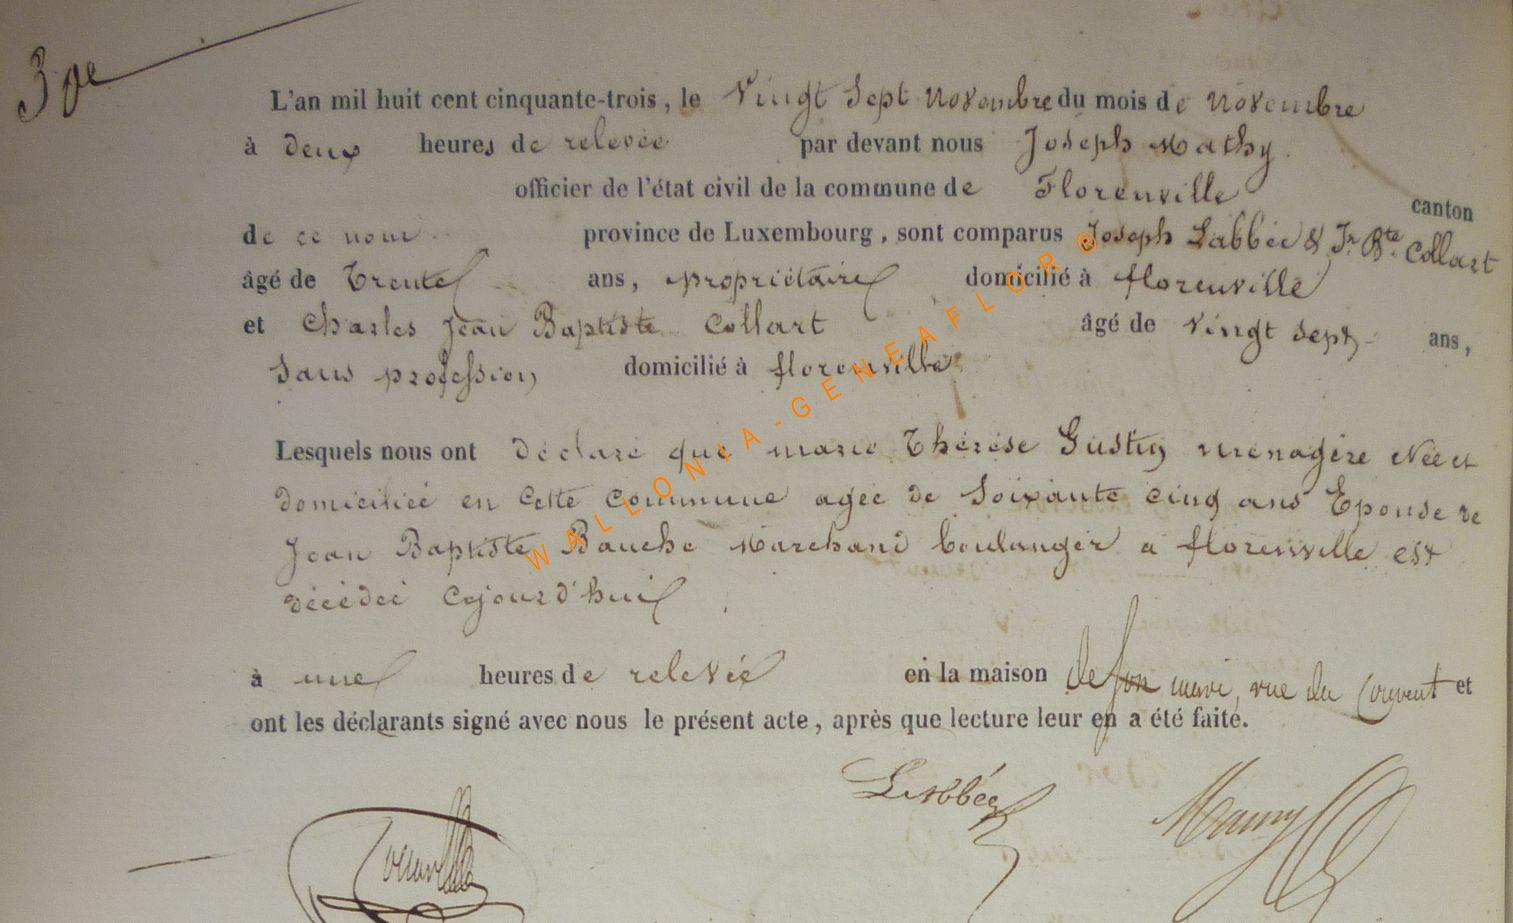 30e
L'an mil huit cent cinquante-trois, le Vingt Sept Novembre du mois de Novembre
à deux heures de relevée par devant nous Joseph Mathy
officier de l'état civil de la commune de Florenville canton
de ce nom province de Luxembourg, sont comparus Joseph Labbée & Jn Bte Collart
âgé de Trente ans, propriétaire domicilié à florenville
et Charles Jean Baptiste Collart âgé de Vingt Sept ans,
Sans profession domicilié à florenville
Lesquels nous ont déclaré que marie Thérèse Gustin ménagère Née et
domiciliée en Cette Commune agée de Soixante cinq ans Epouse de
Jean Baptiste Bauche Marchand boulanger a florenville est
décédée Cejourd'hui
à une heures de relevée en la maison de son mari, rue du Couvent et
ont les déclarants signé avec nous le présent acte, après que lecture leur en a été faite.
Labbée
WALLONIA-GENEAFLOR©